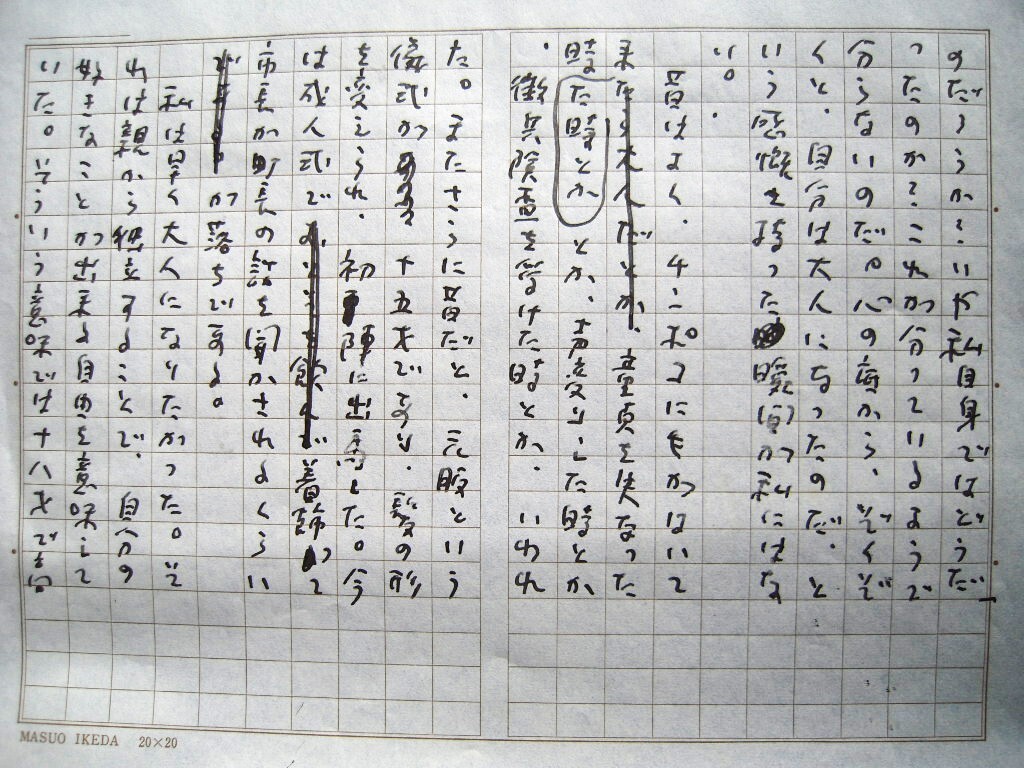 のだろうか?いや私自身ではどうだ
ったのか?これが分っているようで
分らないのだ。心の底から、ぞくぞ
くと、自分は大人になったのだ、と
いう感慨を持った瞬間が私にはな
い。
昔はよく、
来たら大人だとか、童貞を失なった
時た時とかとか、声変りした時とか
、徴兵検査を受けた時とか、いわれ
た。またさらに昔だと、元服という
儀式があり、十五才で、髪の形
を変えられ、初陣に出馬した。今
は成人式で、着飾って
市長か町長の話を聞かされるくらい
が落ちである。
私は早く大人になりたかった。そ
れは親から独立することで、自分の
好きなことが出来る自由を意味して
いた。そういう意味では十八才で高
MASUO IKEDA 20×20